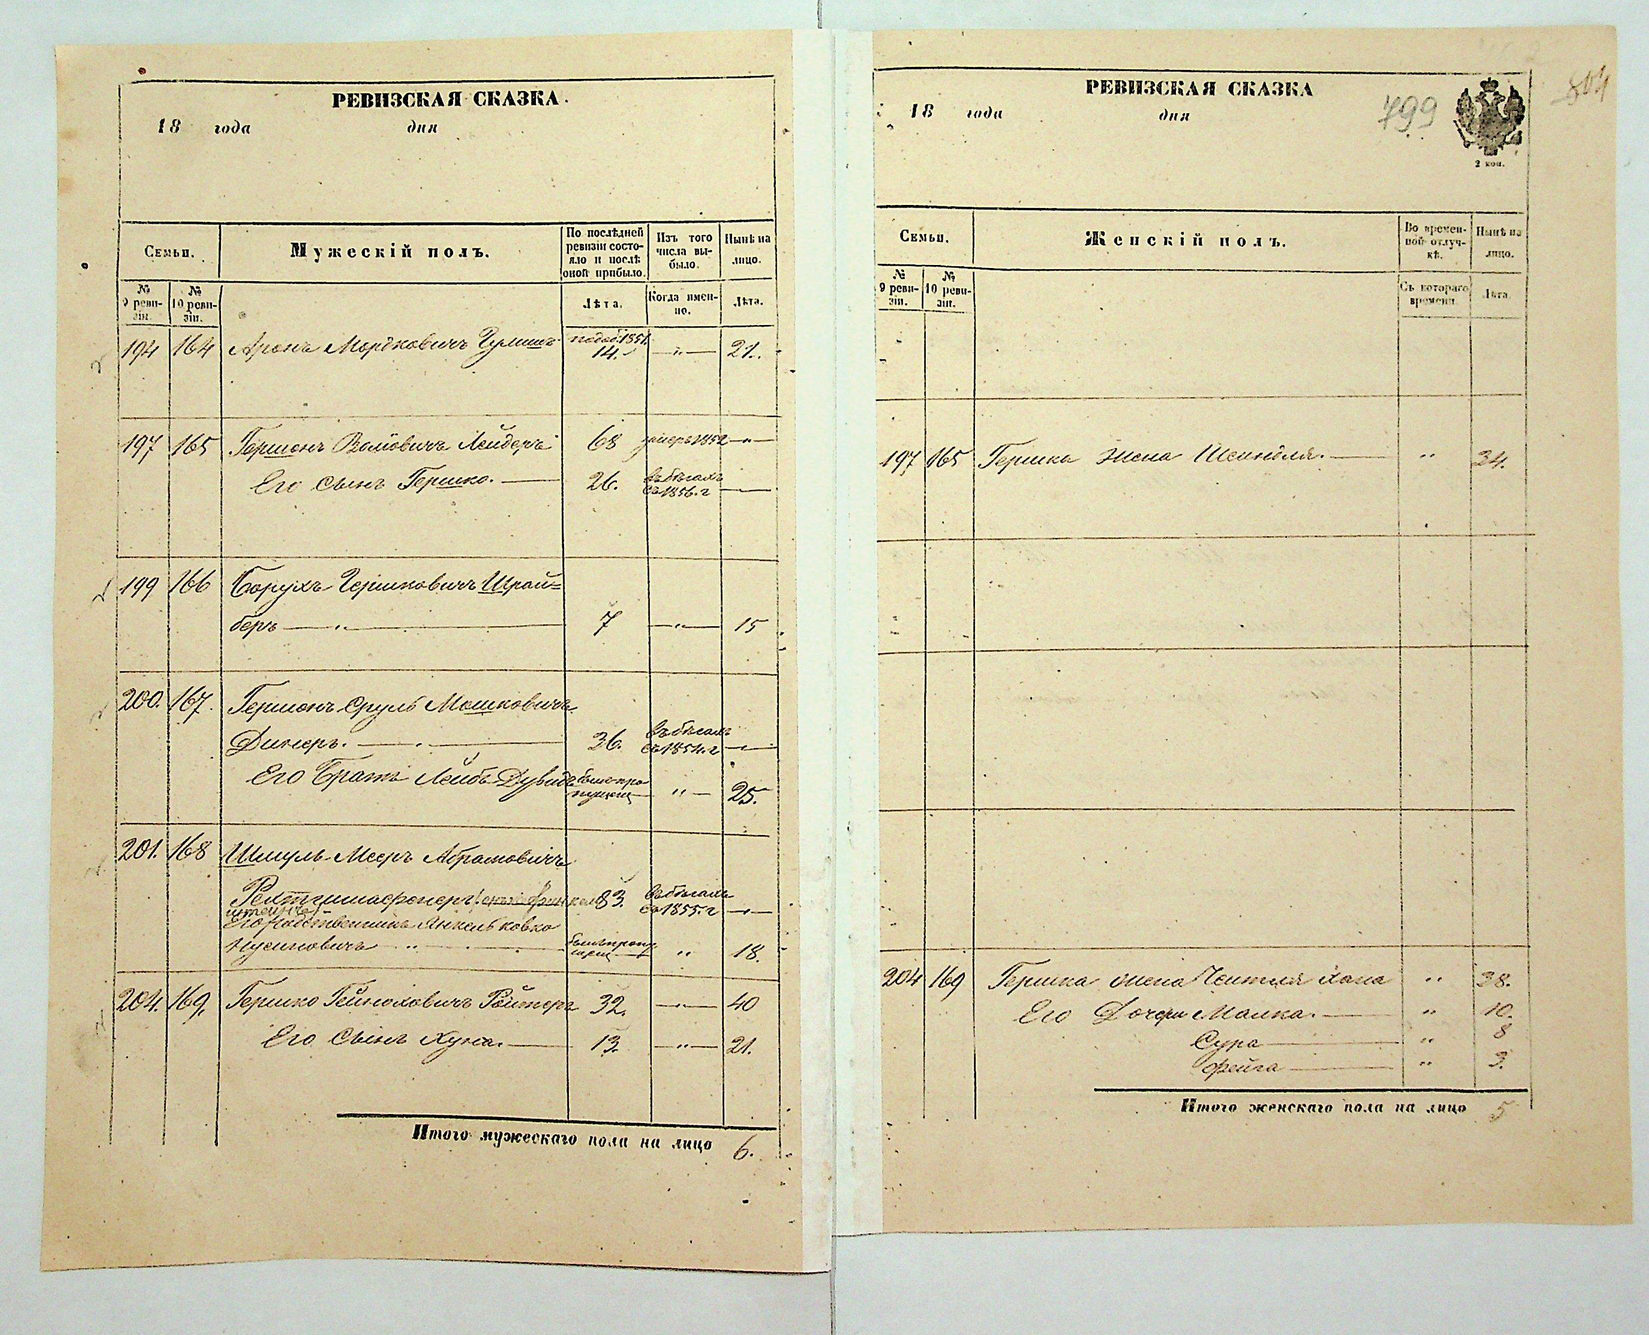 РЕВИЗСКАЯ СКАЗКА.
18 года дня
Семьи.
Мужескій полъ.
По послѣдней ревизіи состояло и послѣ оной прибыло.
Изъ того числа выбыло.
Нынѣ на лицо.
№ 9 ревизіи.
№ 10 ревизіи.
Лѣта.
Когда именно.
Лѣта.
194 164 Аронъ Мордковичъ 14. — " — 21.
197 165 Гершонъ Волѣовичъ 68 умеръ 1852 — " —
Его сынъ Гершко. — 26. въ бѣгахъ съ 1856. г —
199 166 Борухъ Гершковичъ Шрай=
беръ — " — 7 — " — 15
200. 167. Гершонъ Сруль Мошковичъ
Динеръ. — 36. въ бѣгахъ съ 1854. г — " —
Его Братъ Лейбъ Дувидъ " — 25.
201. 168 Шмуль Мееръ Абрамовичъ
83. въ бѣгахъ съ 1855. г — " —
Его родственникъ Янкель
Нусиновичъ " " 18.
204. 169. Гершко Гейноховичъ Рейтеръ 32. — " — 40
Его Сынъ Хуна. — 13. — " — 21.
Итого мужескаго пола на лицо 6.
РЕВИЗСКАЯ СКАЗКА
18 года дня
799
804
2 коп.
Семьи.
Женскій полъ.
Во временной отлучкѣ.
Нынѣ на лицо.
№ 9 ревизіи.
№ 10 ревизіи.
Съ котораго времени.
Лѣта.
197 165 Гершка жена Шейндля. — " 34.
204 169 Гершка жена Хана " 38.
Его Дочери Малка. — " 10.
Сура — " 8
Фейга — " 3.
Итого женскаго пола на лицо 5